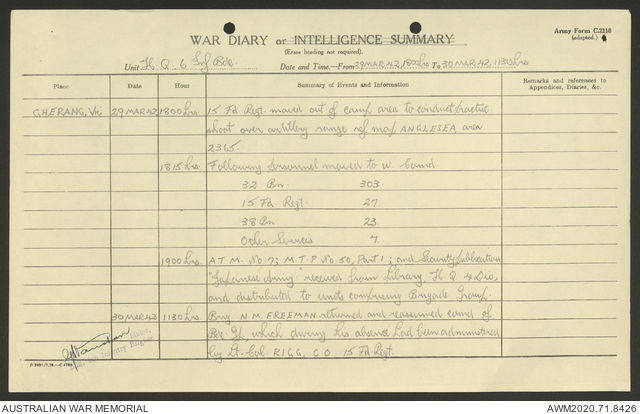 Army Form C.2118
(adapted.)
WAR DIARY or INTELLIGENCE SUMMARY
(Erase heading not required).
Unit H.Q. 6 Inf Bde. Date and Time—From 29 MAR 42, 1800hrs To 30 MAR 42, 1130hrs
Place Date Hour Summary of Events and Information Remarks and references to Appendices, Diaries, &c.
GHERANG, Vic 29 MAR 42 1800 hrs 15 Fd Regt. moved out of camp area to conduct practice
shoot over artillery range ref map ANGLESEA area
2365.
1815 hrs. Following personnel moved to W Comd.
32 Bn 303.
15 Fd Regt. 27.
38 Bn 23
Other Services 7.
1900 hrs. A T M. No 7; M.T.P. No 50, Part 1; and Security publication
"Japanese Army" received from Library, H Q 4 Div,
and distributed to units comprising Brigade Group.
30 MAR 42 1130 hrs. Brig N.M. FREEMAN returned and reassumed comd of
Bde Gp, which during his absence had been administered
by Lt-Col. RIGG, C.O. 15 Fd Regt.
Infantry Brigade
AUSTRALIAN WAR MEMORIAL AWM2020.71.8426